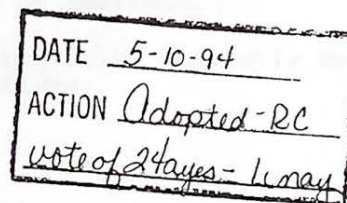 DATE 5-10-94
ACTION Adopted-RC
vote of 24ayes - 1 nay